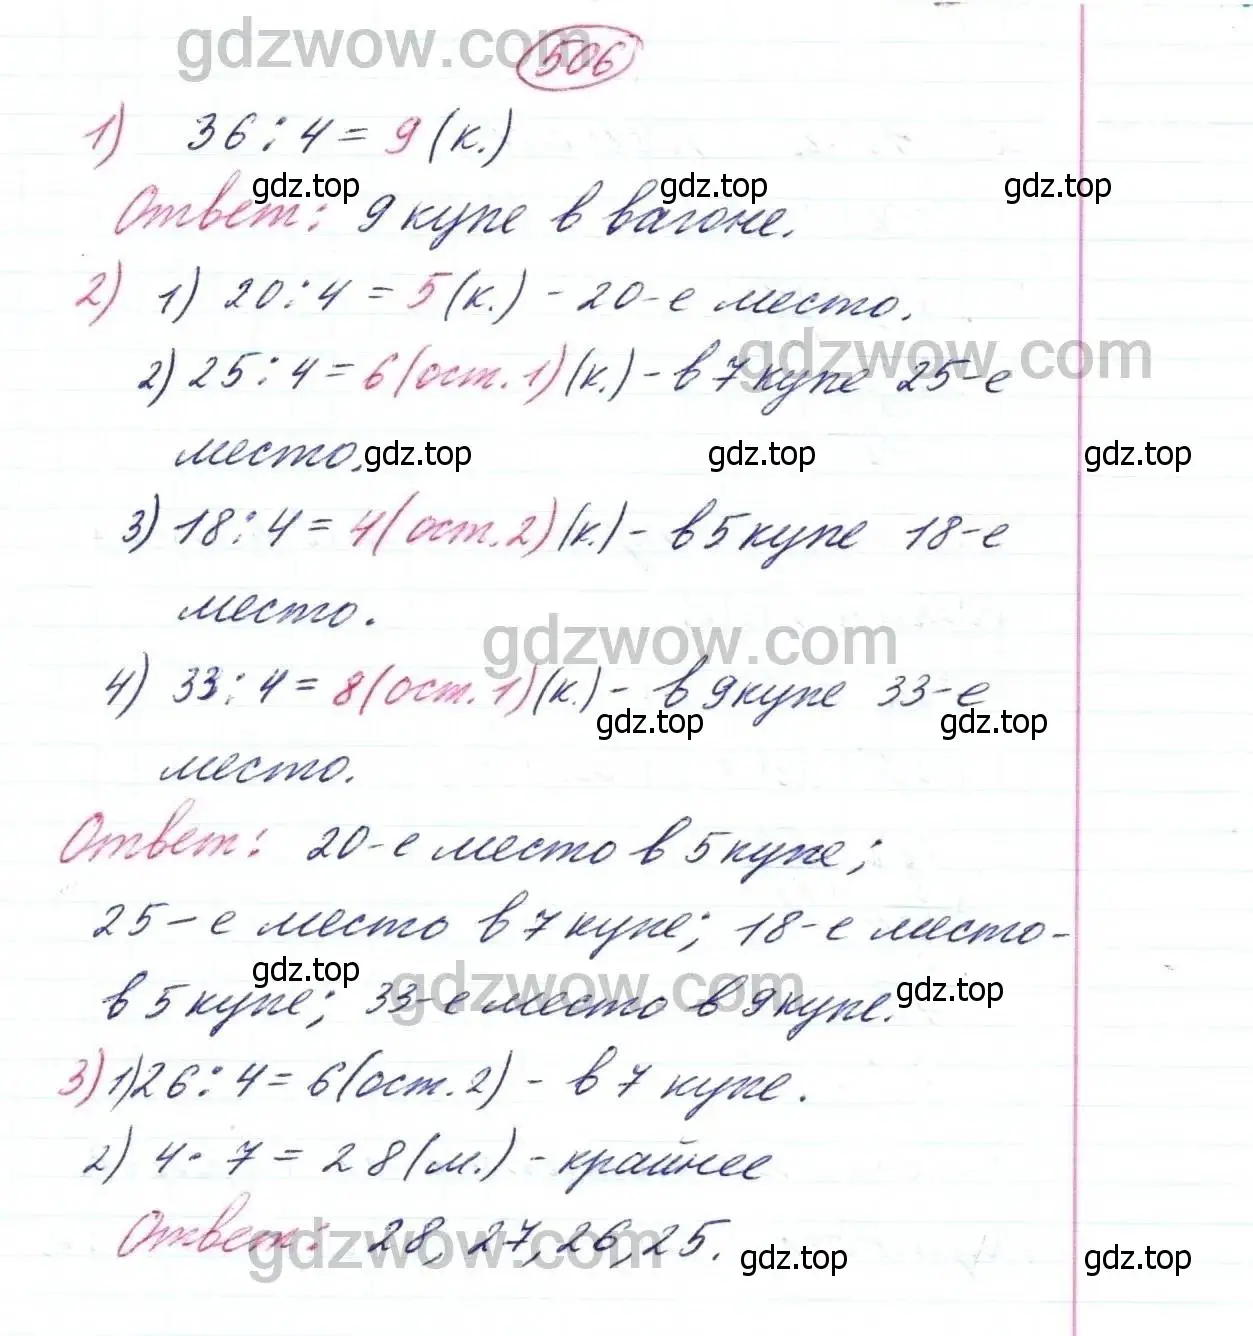 gdzwow.com
506
1) 36 : 4 = 9 (к.)
gdz.top gdz.top gdz.top
Ответ: 9 купе в вагоне.
2) 1) 20 : 4 = 5 (к.) - 20-е место.
gdzwow.com
2) 25 : 4 = 6 (ост. 1) (к.) - в 7 купе 25-е
место. gdz.top gdz.top gdz.top
3) 18 : 4 = 4 (ост. 2) (к.) - в 5 купе 18-е
место.
gdzwow.com
4) 33 : 4 = 8 (ост. 1) (к.) - в 9 купе 33-е
gdz.top gdz.top
место.
Ответ: 20-е место в 5 купе;
25-е место в 7 купе; 18-е место-
gdz.top gdzwow.com gdz.top
в 5 купе; 33-е место в 9 купе.
3) 1) 26 : 4 = 6 (ост. 2) - в 7 купе.
2) 4 · 7 = 28 (м.) - крайнее
gdzwow.com
Ответ: 28, 27, 26, 25.
gdz.top gdz.top